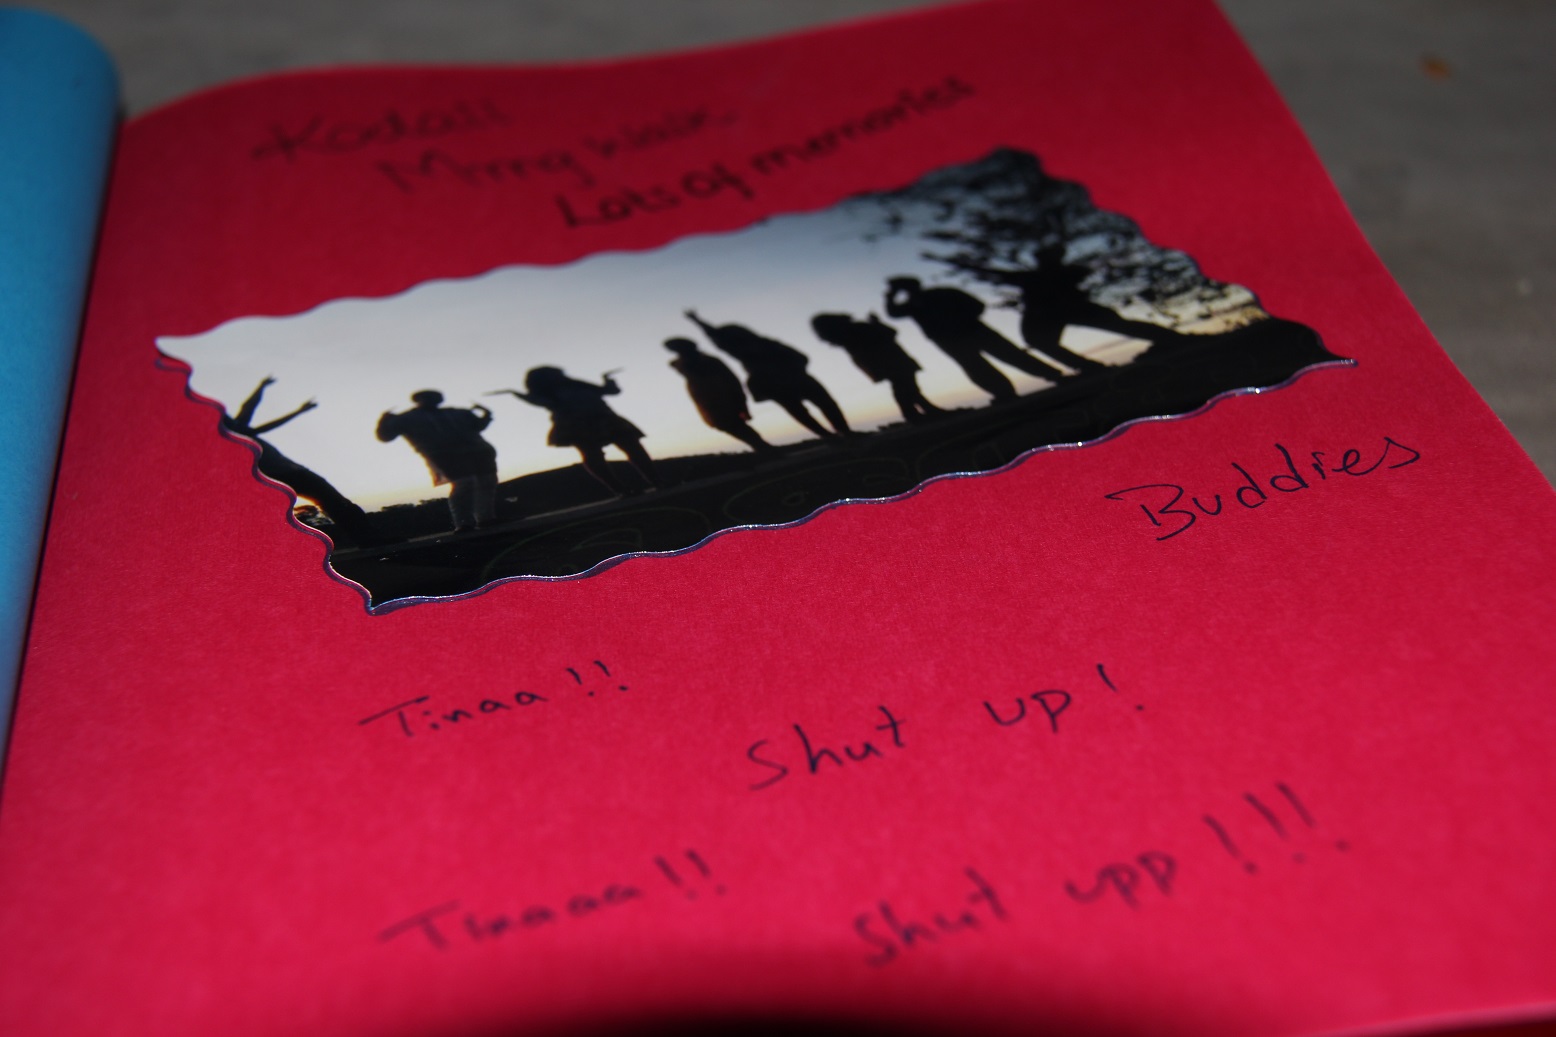 Kodali
Mrng walk
Lots of memories
Buddies
Tinaa!!
Shut up!
Tinaaa!!
Shut upp!!!